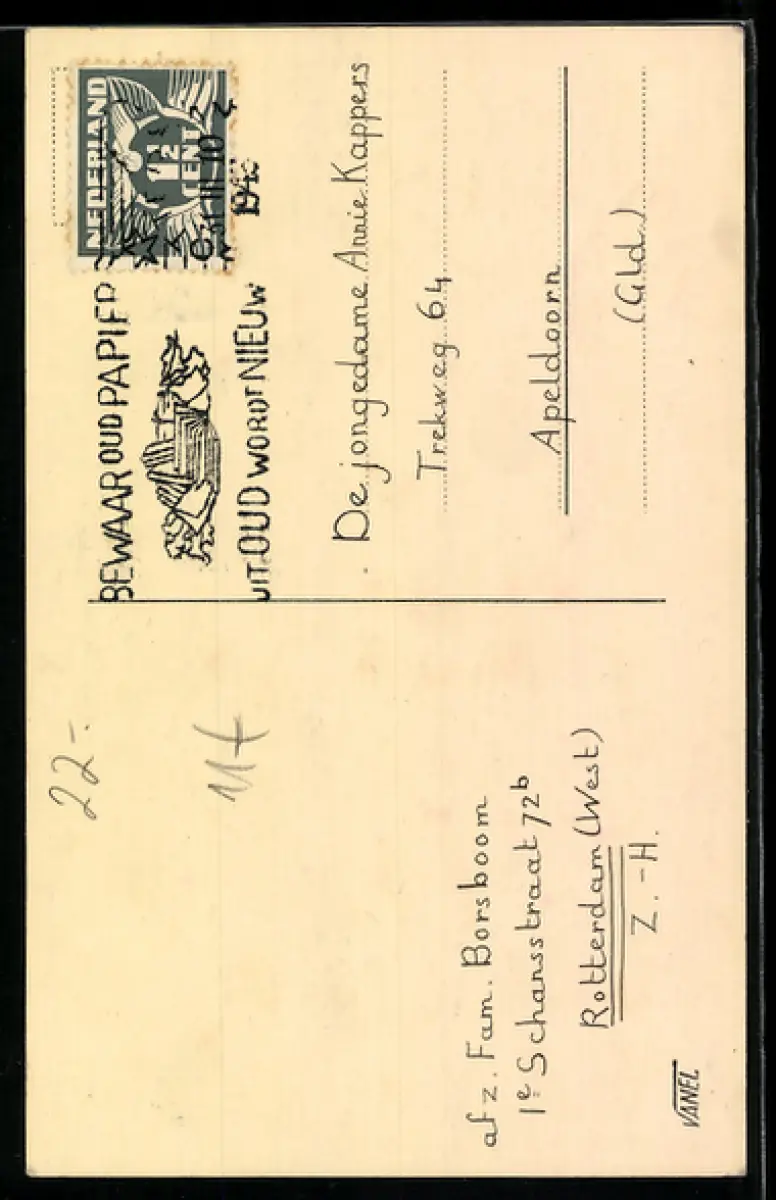 22-
11f
afz. Fam. Borsboom
1e Schansstraat 72b
Rotterdam (West)
Z.-H.
VANEL
NEDERLAND
1½
CENT
31 III 10
BEWAAR OUD PAPIER
UIT OUD WORDT NIEUW
De jongedame Annie Kappers
Trekweg 64
Apeldoorn
(Gld.)